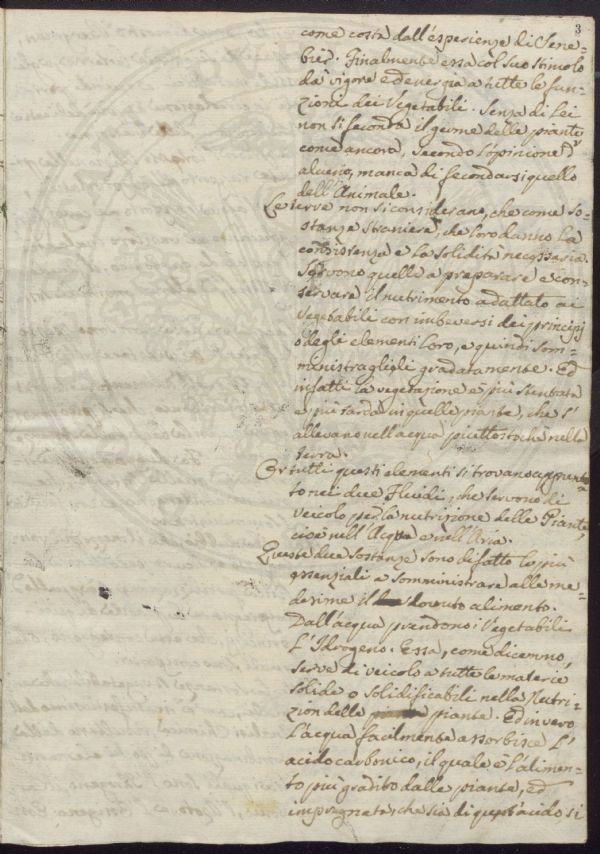 3
come costa dall'esperienze di Sene=
bier. Finalmente essa col suo stimolo
dà vigore ed energia a tutte le fun=
zioni dei Vegetabili. Senza di Lei
non si feconda il germe delle piante
come ancora, secondo l'opinione d'
alcuno, manca di fecondarsi quello
dell'Animale.
Le terre non si considerano, che come so=
stanze straniere, che loro danno la
consistenza e la solidità necessaria.
Servono quelle a preparare e con=
servare il nutrimento adattato ai
Vegetabili con imbeversi dei principj
o degli elementi loro, e quindi som=
ministraglieli gradatamente. Ed
infatti la vegetazione è più stentata
e più tarda in quelle piante, che s'
allevano nell'acqua piuttosto che nella
terra.
Or tutti questi elementi si trovano appunto
nei due Fluidi, che servono di
veicolo per la nutrizione delle Piante,
cioè nell'Acqua e nell'Aria.
Queste due sostanze sono di fatto le più
essenziali a somministrare alle me=
desime il dovuto alimento.
Dall'acqua prendono i Vegetabili
l'Idrogeno. Essa, come dicemmo,
serve di veicolo a tutte le materie
solide o solidificabili nella Nutri=
zion delle piante. Ed in vero
l'acqua facilmente assorbisce l'
acido carbonico, il quale è l'alimen=
to più gradito dalle piante, ed
impregnata, che sia di quest'acido si